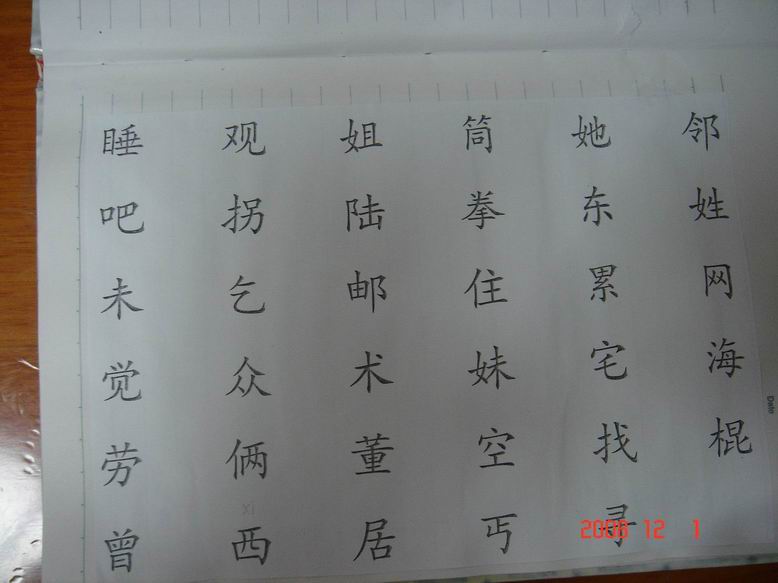 睡 观 姐 筒 她 邻
吧 拐 陆 拳 东 姓
未 乞 邮 住 累 网
觉 众 术 妹 宅 海
Date
劳 俩 董 空 找 棍
xi
曾 西 居 丐 寻
2006 12 1